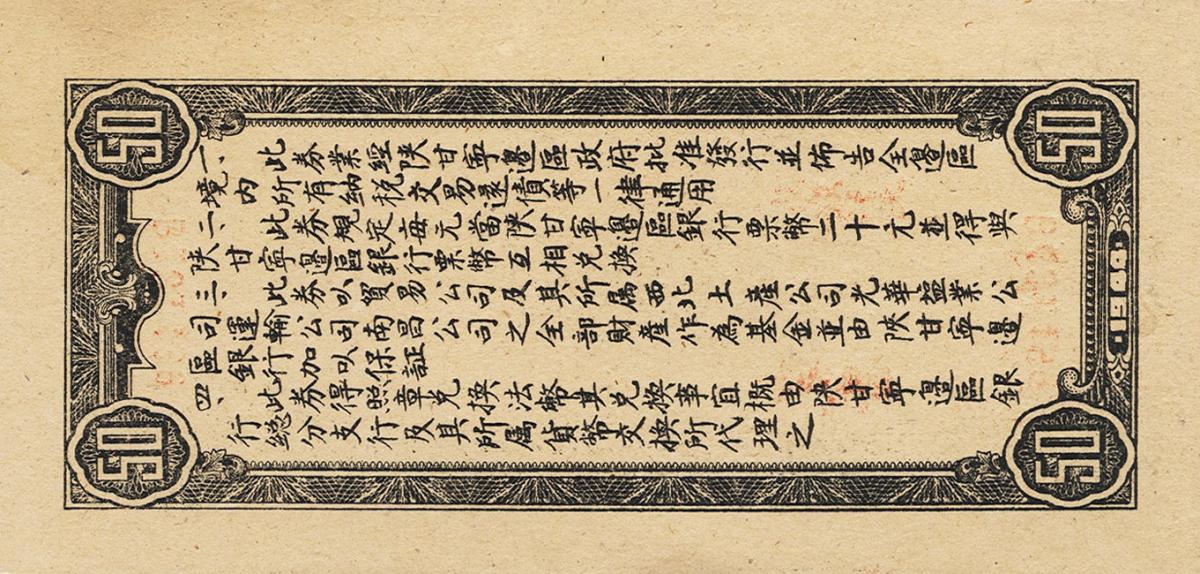 50
50
一、此券業經陝甘寧邊區政府批准發行並佈告全邊區
境內所有納税交易還債等一律通用
二、此券規定每元當陝甘寧邊區銀行票幣二十元並得與
陝甘寧邊區銀行票幣互相兑換
三、此券以貿易公司及其所属西北土產公司光華鹽業公
司運輸公司南昌公司之全部財產作為基金並由陝甘寧邊
區銀行加以保証
四、此券得照章兑換法幣其兑換事宜概由陝甘寧邊區銀
行總分支行及其所属貨幣交換所代理之
50
50